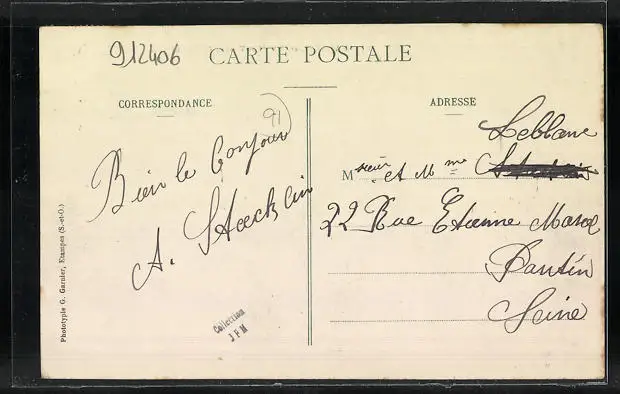 912406
CARTE POSTALE
CORRESPONDANCE
91
Bien le bonjour
A. Stæcklin
ADRESSE
Leblanc
Msieur et Mme
22 Rue Etienne Marcel
Pantin
Seine
Phototypie G. Garnier, Etampes (S.-et-O.)
Collection
JFM